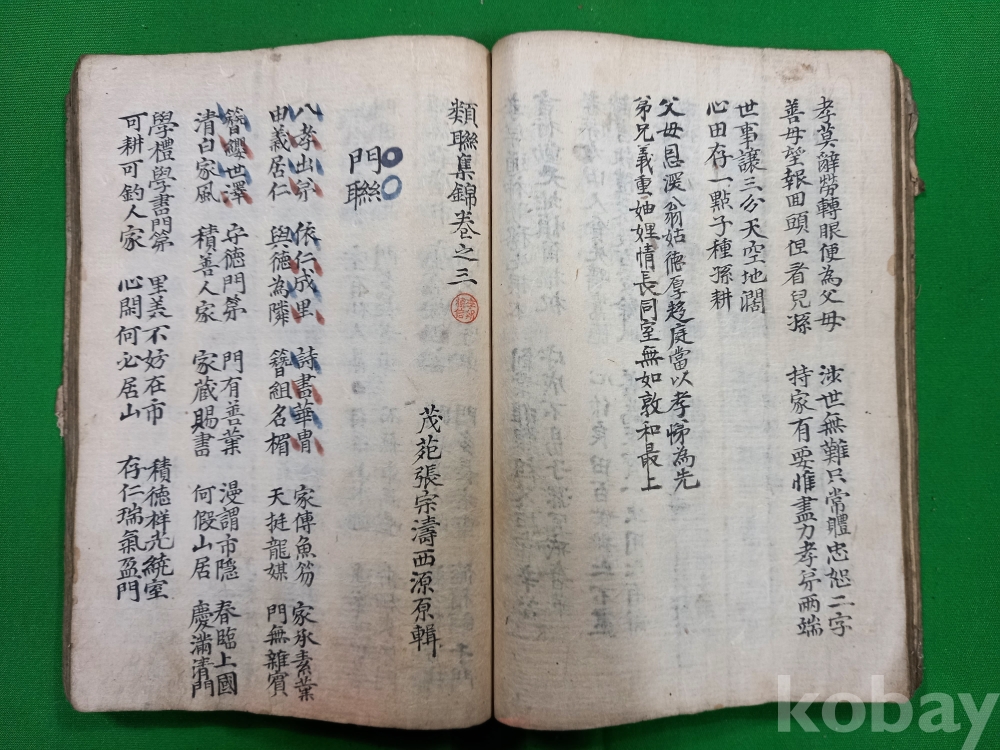 孝莫辭勞轉眼便為父母　涉世無難只常體忠恕二字
善毋望報回頭但看兒孫　持家有要惟盡力孝弟兩端
世事讓三分天空地闊
心田存一點子種孫耕
父母恩深翁姑德厚趨庭當以孝悌為先
弟兄義重妯娌情長同室無如敦和最上
類聯集錦卷之三
茂苑張宗濤西源原輯
門聯
入孝出弟　依仁成里　詩書華胄　家傳魚笏　家承素業
由義居仁　與德為隣　簪組名楣　天挺龍媒　門無雜賓
簪纓世澤　守德門第　門有善業　漫謂市隱　春臨上國
清白家風　積善人家　家蔵賜書　何假山居　慶滿清門
學禮學書門第　里美不妨在市　積德祥光繞室
可耕可釣人家　心閑何必居山　存仁瑞氣盈門
kobay